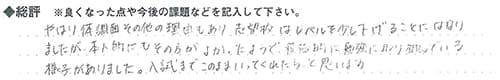 ◆総評 ※良くなった点や今後の課題などを記入して下さい。
やはり体調面その他の理由もあり志望校はレベルを少し下げることにはなり
ましたが、本人的にもその方がよかったようで意欲的に勉強に取り組んでいる
様子がありました。入試までこのままいってくれたらと思います